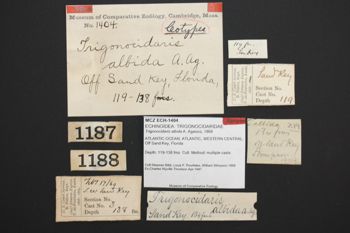 Museum of Comparative Zoology, Cambridge, Mass.
No. 1404.
Cotypes
Trigonocidaris
albida A. Ag.
Off Sand Key, Florida,
119-138 fms.
119 fms.
Sand Key
Section No.
Cast No.
Depth 119
1187
1188
MCZ ECH-1404
ECHINOIDEA TRIGONOCIDARIDAE
Trigonocidaris albida A. Agassiz, 1869
ATLANTIC OCEAN, ATLANTIC, WESTERN CENTRAL
Off Sand Key, Florida
Depth: 119-138 fms Coll. Method: multiple casts
Museum of Comparative Zoology
albida
off Sand Key
Sand Key
Section No.
Cast No. 3
Depth 138 fm.
Trigonocidaris
albida Ag
Sand Key 138 fms